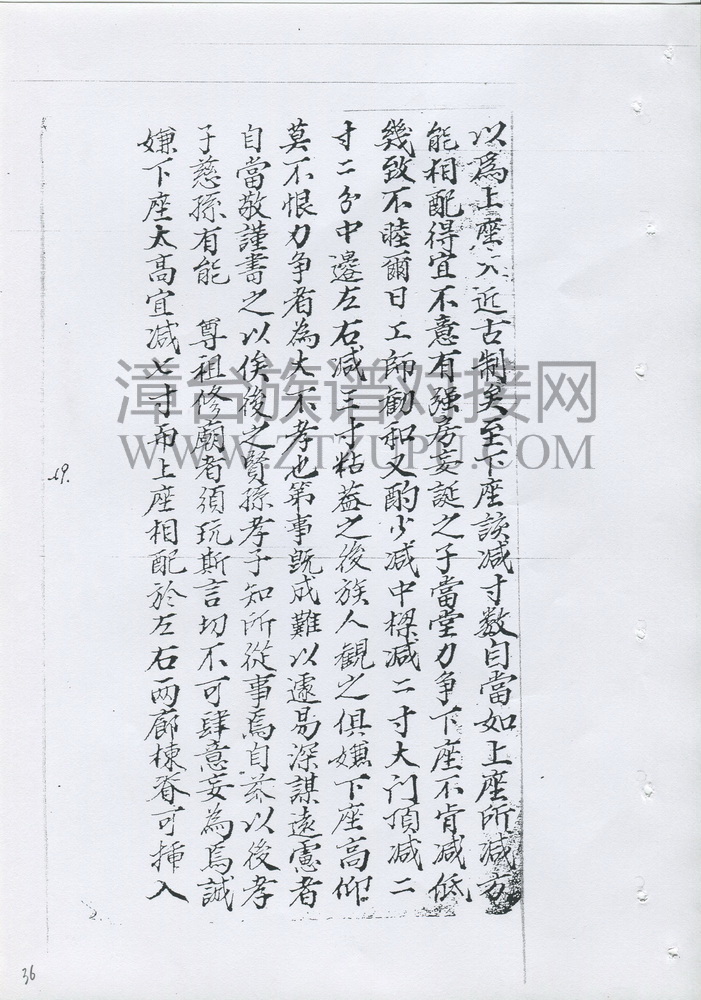 以爲上座入近古制矣至下座該减寸数自當如上座所减方
能相配得宜不意有强房妄誕之子當堂力争下座不肯减低
幾致不睦爾日工師勸和又酌少减中樑减二寸大门頂减二
寸二分中邊左右减三寸粘蓋之後族人観之俱嫌下座高仰
莫不恨力争者為大不孝也第事既成難以遽易深謀遠慮者
自當敬謹書之以俟後之賢孫孝子知所從事焉自茲以後孝
子慈孫有能 尊祖修廟者須玩斯言切不可肆意妄為焉誠
嫌下座太高宜减七寸而上座相配於左右两廊棟脊可挿入
19.
36
漳台族谱对接网
WWW.ZTZUPU.COM